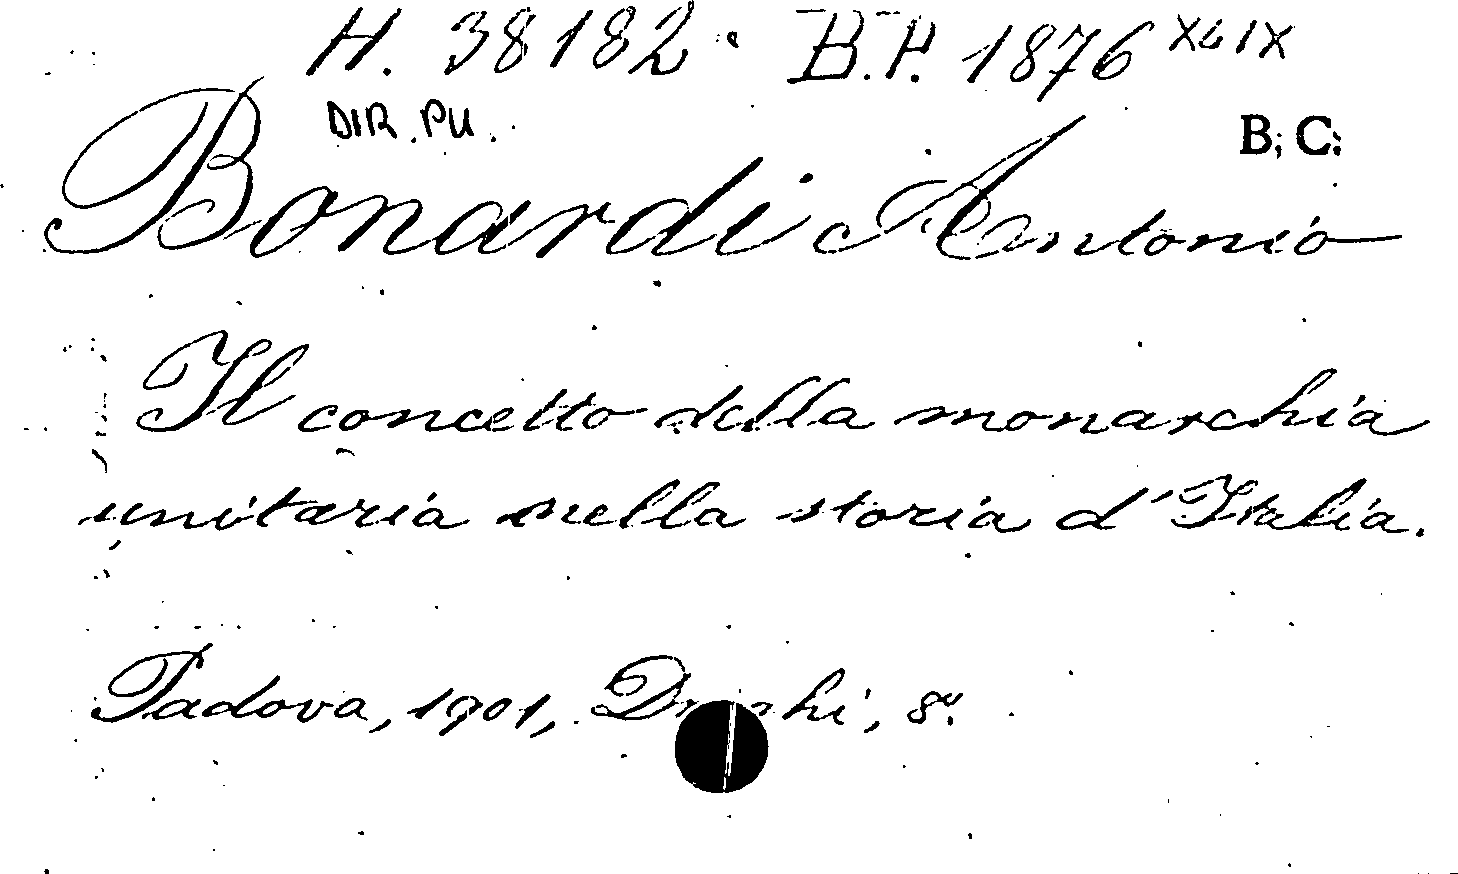 H. 38182. B.P. 1876 XLIX
DIR. PU.
B. C.
Bonardi Antonio
Il concetto della monarchia
unitaria nella storia d'Italia.
Padova, 1901, 8°.